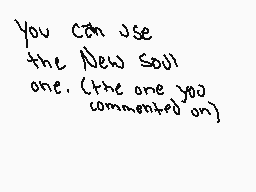 You can use
the New soul
one. (the one you
commented on)